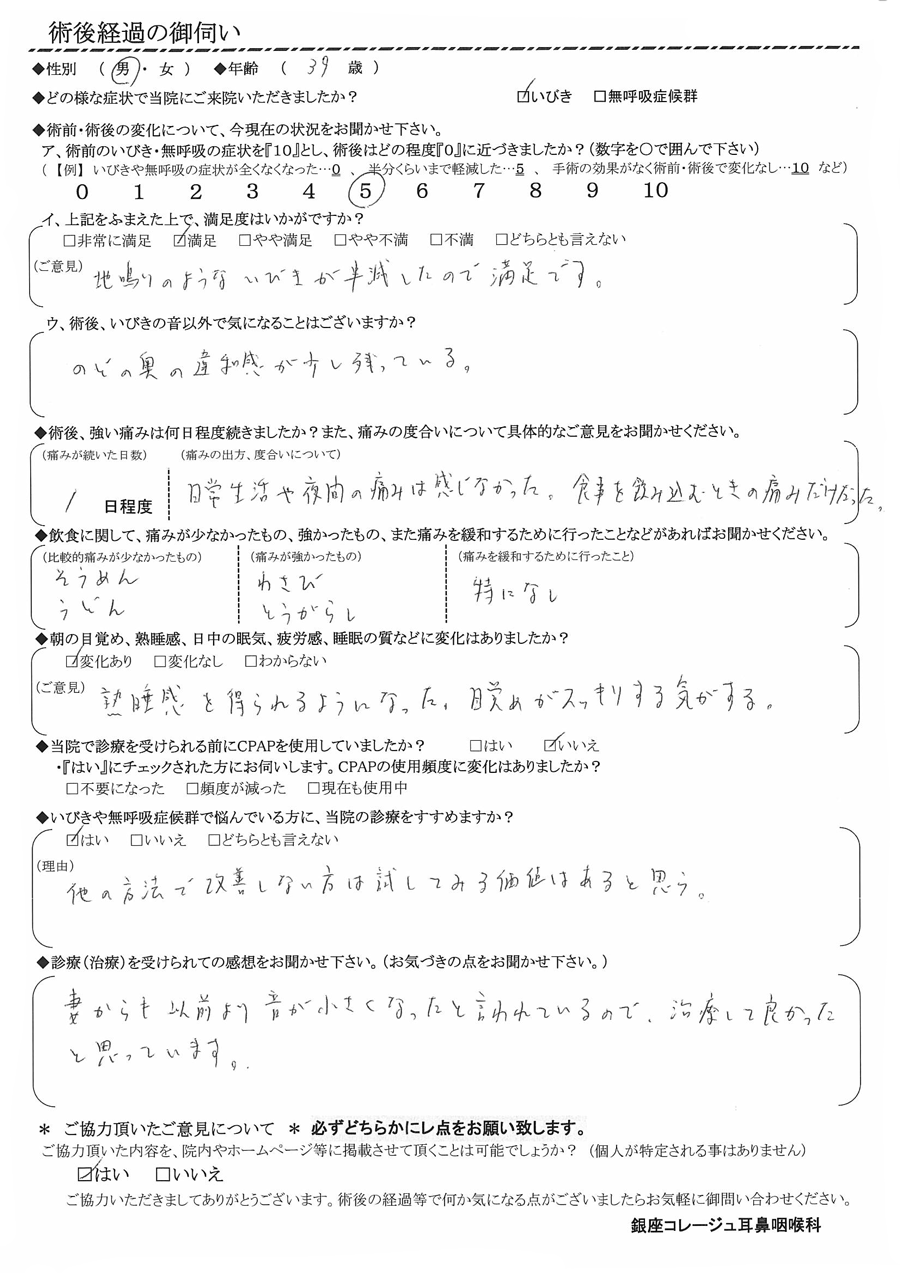 術後経過の御伺い
◆性別 ( 男 ・ 女 ) ◆年齢 ( 39 歳 )
◆どの様な症状で当院にご来院いただきましたか? ☑いびき □無呼吸症候群
◆術前・術後の変化について、今現在の状況をお聞かせ下さい。
ア、術前のいびき・無呼吸の症状を『10』とし、術後はどの程度『0』に近づきましたか?(数字を○で囲んで下さい)
(【例】 いびきや無呼吸の症状が全くなくなった…0 、 半分くらいまで軽減した…5 、 手術の効果がなく術前・術後で変化なし…10 など)
0 1 2 3 4 5 6 7 8 9 10
イ、上記をふまえた上で、満足度はいかがですか?
□非常に満足 ☑満足 □やや満足 □やや不満 □不満 □どちらとも言えない
(ご意見) 地鳴りのような いびきが半減したので 満足です。
ウ、術後、いびきの音以外で気になることはございますか?
のどの奥の違和感が少し残っている。
◆術後、強い痛みは何日程度続きましたか?また、痛みの度合いについて具体的なご意見をお聞かせください。
(痛みが続いた日数) (痛みの出方、度合いについて)
1 日程度 日常生活や夜間の痛みは感じなかった。 食事を飲み込むときの痛みだけだった。
◆飲食に関して、痛みが少なかったもの、強かったもの、また痛みを緩和するために行ったことなどがあればお聞かせください。
(比較的痛みが少なかったもの) (痛みが強かったもの) (痛みを緩和するために行ったこと)
そうめん わさび 特になし
うどん とうがらし
◆朝の目覚め、熟睡感、日中の眠気、疲労感、睡眠の質などに変化はありましたか?
☑変化あり □変化なし □わからない
(ご意見) 熟睡感を得られるようになった。 目覚めがスッキリする気がする。
◆当院で診療を受けられる前にCPAPを使用していましたか? □はい ☑いいえ
・『はい』にチェックされた方にお伺いします。CPAPの使用頻度に変化はありましたか?
□不要になった □頻度が減った □現在も使用中
◆いびきや無呼吸症候群で悩んでいる方に、当院の診療をすすめますか?
☑はい □いいえ □どちらとも言えない
(理由)
他の方法で改善しない方は試してみる価値はあると思う。
◆診療(治療)を受けられての感想をお聞かせ下さい。(お気づきの点をお聞かせ下さい。)
妻からも以前より音が小さくなったと言われているので、治療して良かった
と思っています。
＊ ご協力頂いたご意見について ＊ 必ずどちらかにレ点をお願い致します。
ご協力頂いた内容を、院内やホームページ等に掲載させて頂くことは可能でしょうか? (個人が特定される事はありません)
☑はい □いいえ
ご協力いただきましてありがとうございます。術後の経過等で何か気になる点がございましたらお気軽に御問い合わせください。
銀座コレージュ耳鼻咽喉科